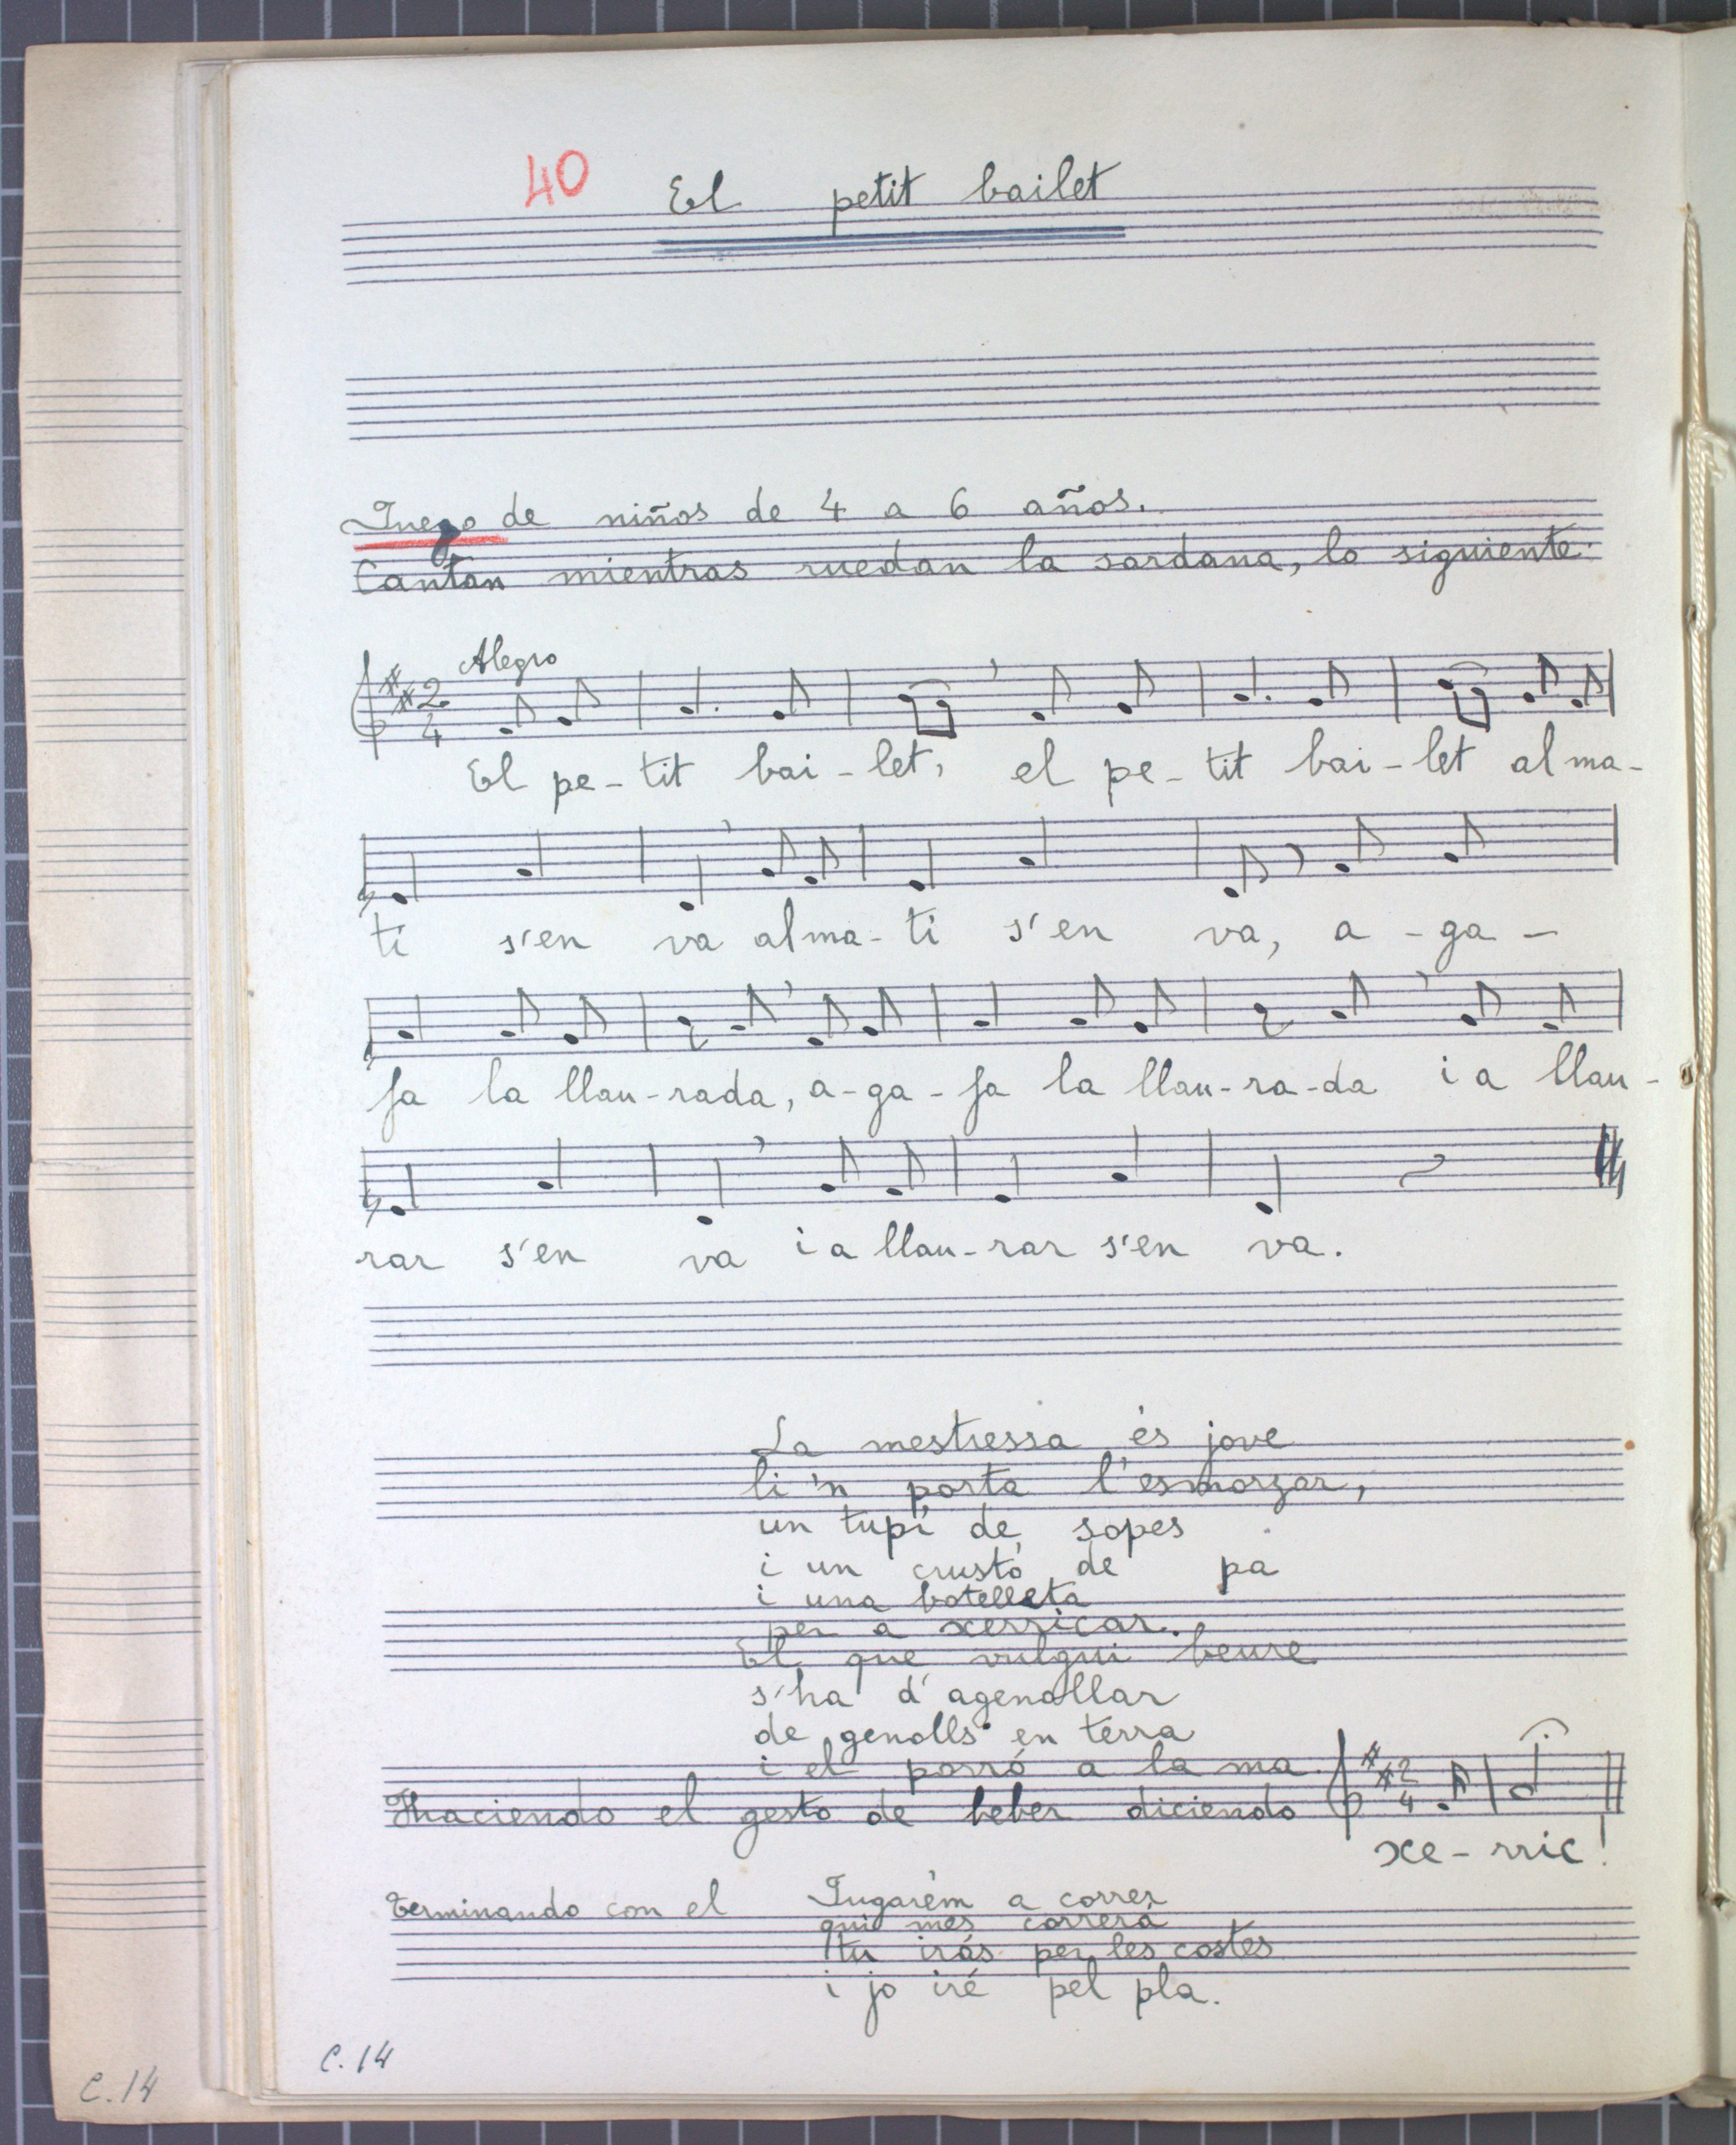 40 El petit bailet
Juego de niños de 4 a 6 años.
Cantan mientras ruedan la sardana, lo siguiente:
Alegro
2
4
El pe-tit bai-let, el pe-tit bai-let al ma-
ti s'en va al ma-ti s'en va, a-ga-
fa la llau-rada, a-ga-fa la llau-ra-da i a llau-
rar s'en va i a llau-rar s'en va.
La mestressa és jove
li 'n porta l'esmorzar,
un tupí de sopes
i un crustó de pa
i una botelleta
per a xerricar.
El que vulgui beure
s'ha d'agenollar
de genolls en terra
i el porró a la ma
haciendo el gesto de beber diciendo
2
4
xe-rric!
terminando con el Jugarém a correr
qui mes correrá
tu irás per les costes
i jo iré pel pla.
C.14
C.14